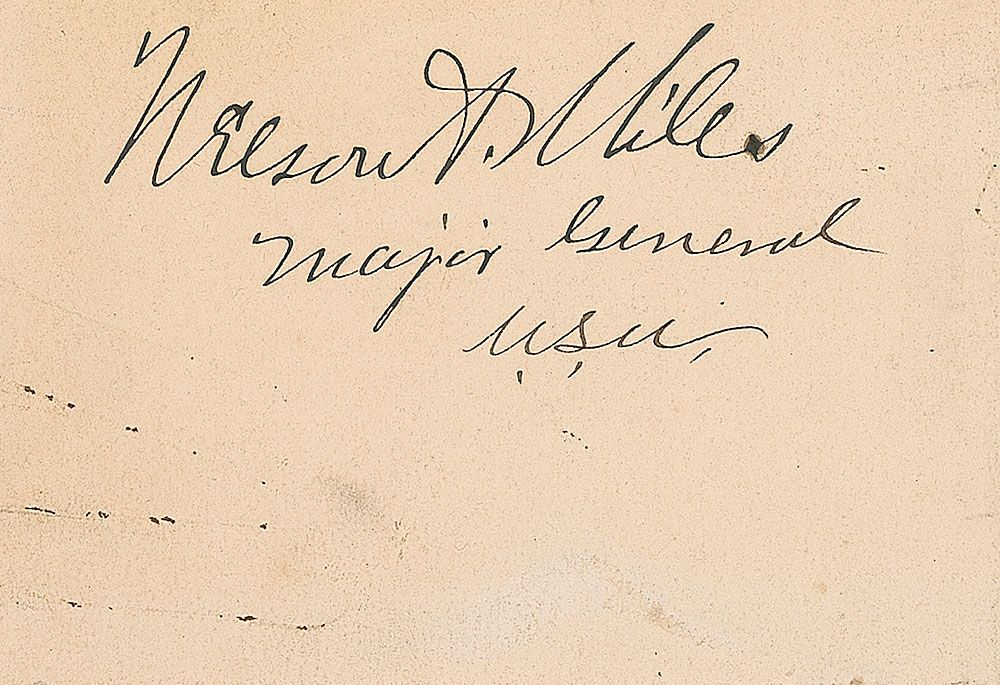 Nelson A. Miles
Major General
U.S.A.